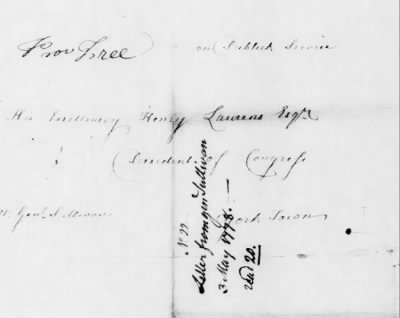 Prov Free on Publick Service
His Excellency Henry Laurens Esqr.
President of Congress
Genl. Sullivan York Town
No 22
Letter from gen Sullivan
3 May 1778.
read 20.